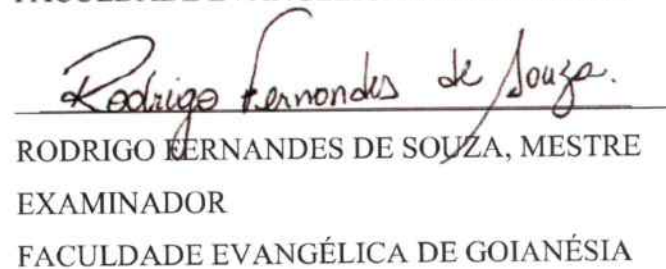 Rodrigo Fernandes de Souza.
RODRIGO FERNANDES DE SOUZA, MESTRE
EXAMINADOR
FACULDADE EVANGÉLICA DE GOIANÉSIA